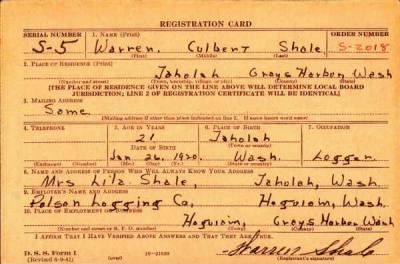 REGISTRATION CARD
SERIAL NUMBER 1. NAME (Print) ORDER NUMBER
S-5 Warren Culbert Shale S-2018
(First) (Middle) (Last)
2. PLACE OF RESIDENCE (Print)
Taholah Grays Harbor Wash
(Number and street) (Town, township, village, or city) (County) (State)
[THE PLACE OF RESIDENCE GIVEN ON THE LINE ABOVE WILL DETERMINE LOCAL BOARD
JURISDICTION; LINE 2 OF REGISTRATION CERTIFICATE WILL BE IDENTICAL]
3. MAILING ADDRESS
Same
[Mailing address if other than place indicated on line 2. If same insert word same]
4. TELEPHONE 5. AGE IN YEARS 6. PLACE OF BIRTH 7. OCCUPATION
21 Taholah
DATE OF BIRTH (Town or county)
Jan 26, 1920. Wash. Logger
(Exchange) (Number) (Mo.) (Day) (Yr.) (State or country)
8. NAME AND ADDRESS OF PERSON WHO WILL ALWAYS KNOW YOUR ADDRESS
Mrs Lila Shale, Taholah, Wash.
9. EMPLOYER'S NAME AND ADDRESS
Polson Logging Co, Hoquiam, Wash
10. PLACE OF EMPLOYMENT OR BUSINESS
Hoquiam, Grays Harbor Wash
(Number and street or R. F. D. number) (Town) (County) (State)
I AFFIRM THAT I HAVE VERIFIED ABOVE ANSWERS AND THAT THEY ARE TRUE.
D. S. S. Form 1 Warren Shale
(Registrant's signature)